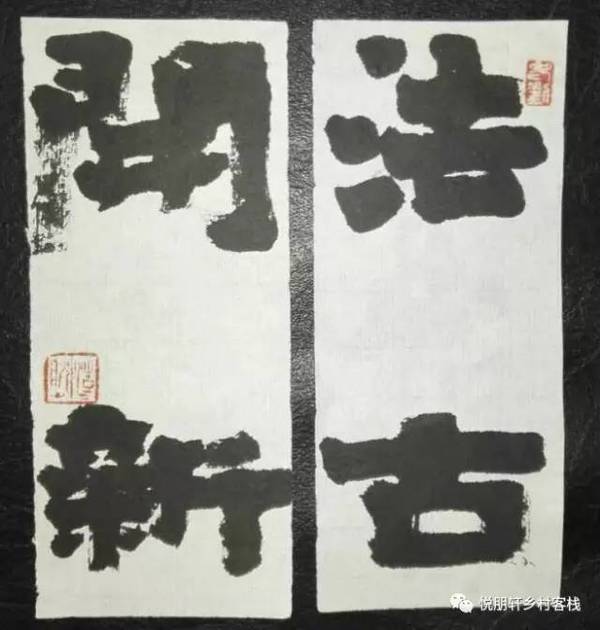 法古
開新
悦朋轩乡村客栈